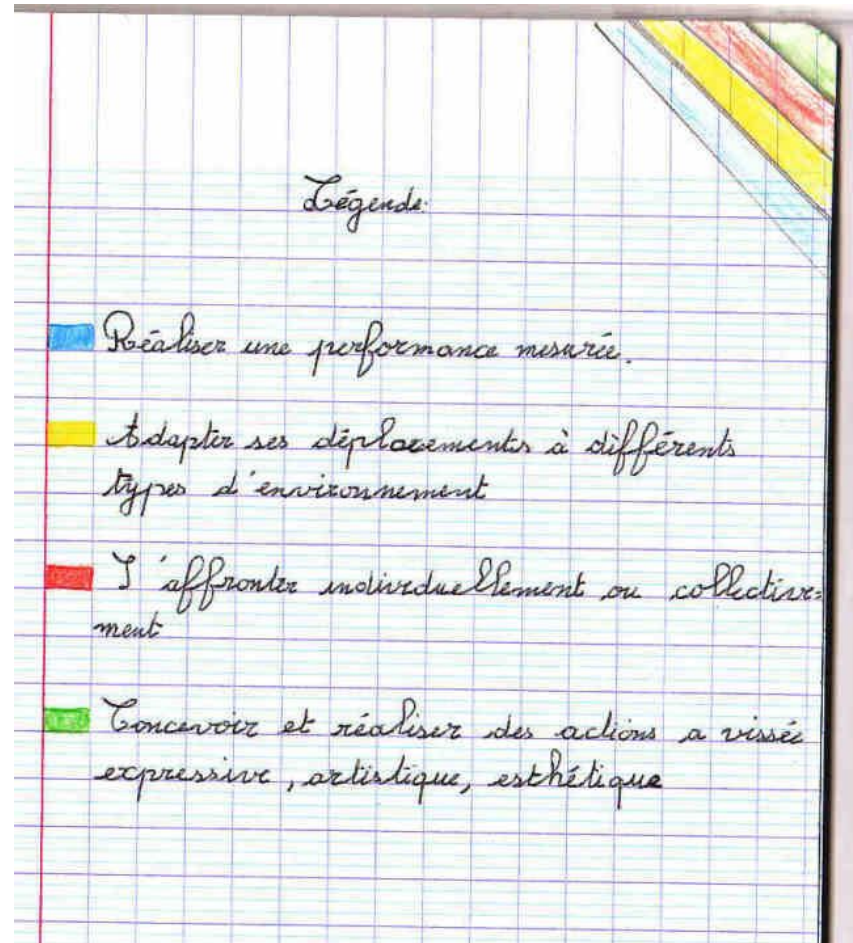 Légende:
Réaliser une performance mesurée.
Adapter ses déplacements à différents
types d'environnement
S'affronter individuellement ou collective=
ment
Concevoir et réaliser des actions a vissée
expressive, artistique, esthétique